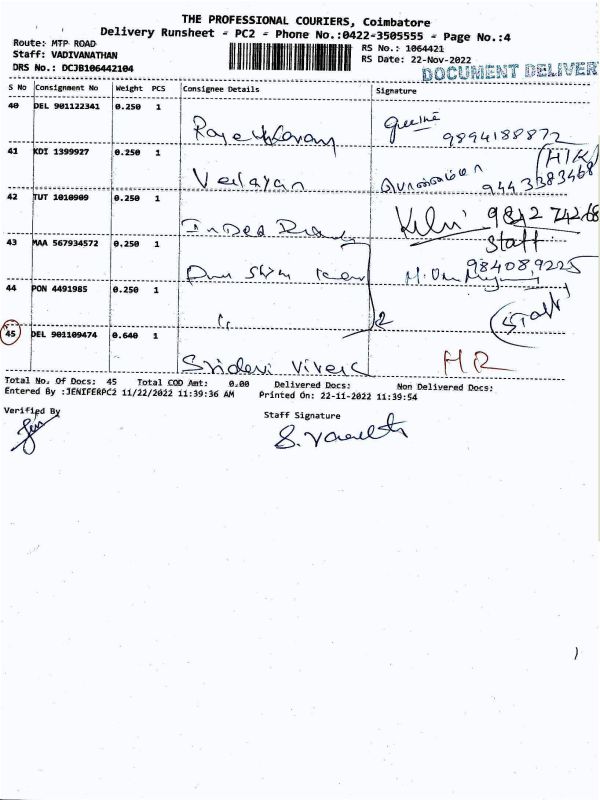 THE PROFESSIONAL COURIERS, Coimbatore
Delivery Runsheet - PC2 - Phone No.:0422-3505555 - Page No.:4
Route: MTP ROAD
RS No.: 1064421
Staff: VADIVANATHAN
RS Date: 22-Nov-2022
DRS No.: DCJB106442104
DOCUMENT DELIVER
S No Consignment No Weight PCS Consignee Details Signature
40 DEL 901122341 0.250 1
9894188872
41 KDI 1399927 0.250 1
Velayan
9443383468
42 TUT 1010909 0.250 1
98427 4268
Staff
43 MAA 567934572 0.250 1
984089,9225
44 PON 4491985 0.250 1
2 Staff
45 DEL 901109474 0.640 1
Sridevi Vivek HR
Total No. Of Docs: 45 Total COD Amt: 0.00 Delivered Docs: Non Delivered Docs:
Entered By :JENIFERPC2 11/22/2022 11:39:36 AM Printed On: 22-11-2022 11:39:54
Verified By
Staff Signature